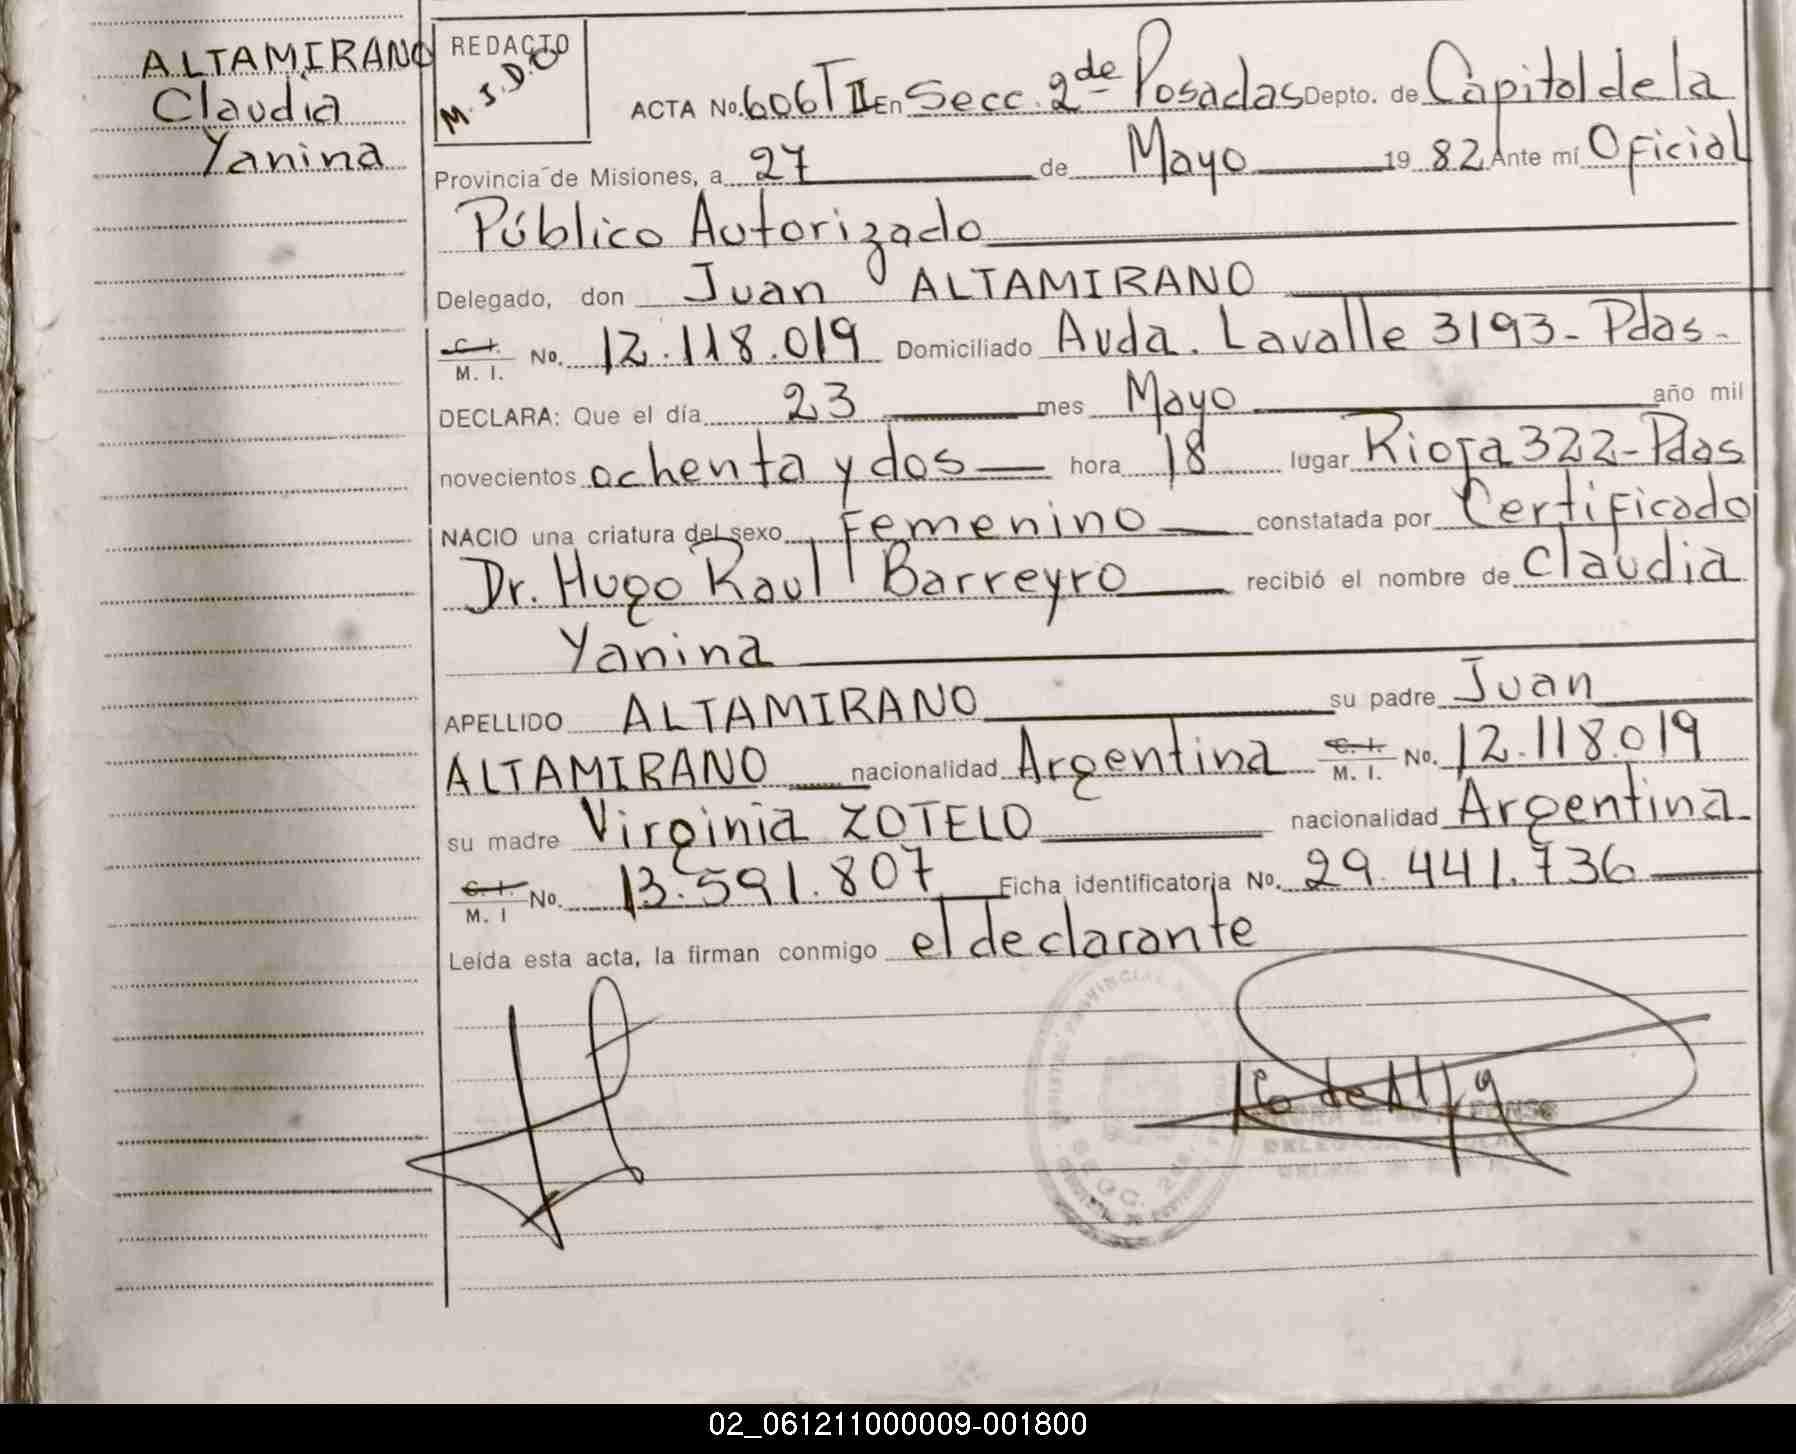 ALTAMIRANO
Claudia
Yanina
REDACTO
M.S.D.O
ACTA No. 606 T II En Secc. 2de Posadas Depto. de Capital de la
Provincia de Misiones, a 27 de Mayo 19 82 Ante mí Oficial
Público Autorizado
Delegado, don Juan ALTAMIRANO
C. I. M. I. No. 12.118.019 Domiciliado Avda. Lavalle 3193 - Pdas -
DECLARA: Que el día 23 mes Mayo año mil
novecientos ochenta y dos hora 18 lugar Rioja 322 - Pdas
NACIO una criatura del sexo Femenino constatada por Certificado
Dr. Hugo Raul Barreyro recibió el nombre de Claudia
Yanina
APELLIDO ALTAMIRANO su padre Juan
ALTAMIRANO nacionalidad Argentina C. I. M. I. No. 12.118.019
su madre Virginia ZOTELO nacionalidad Argentina
C. I. M. I No. 13.591.807 Ficha identificatoria No. 29.441.736
Leída esta acta, la firman conmigo el declarante
02_061211000009-001800